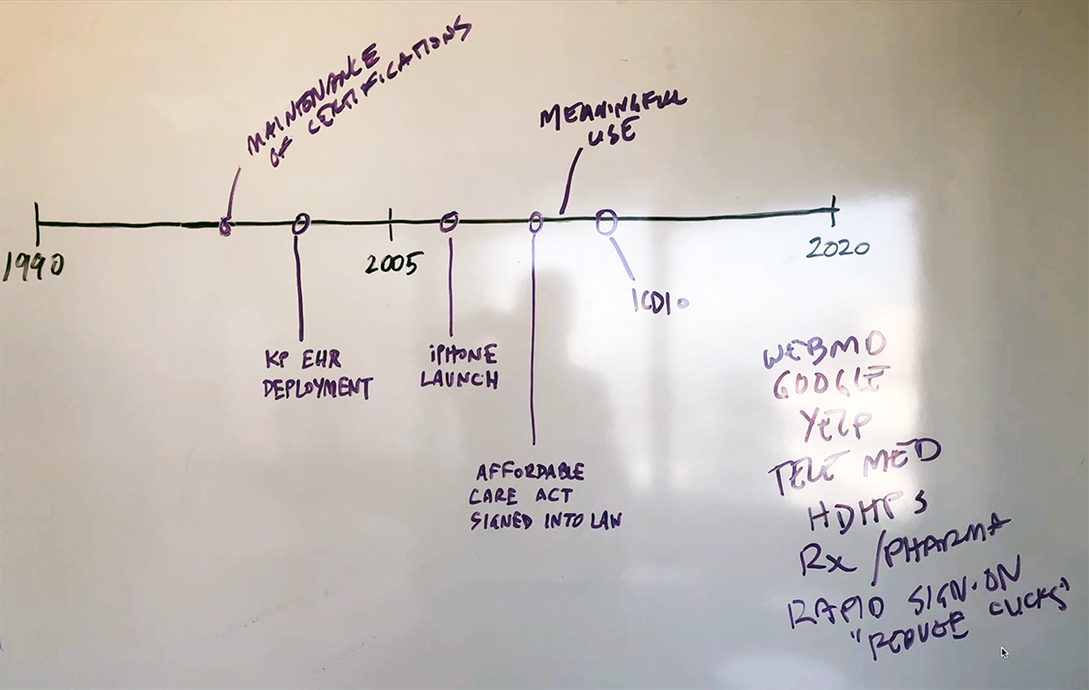 MAINTENANCE
OF CERTIFICATIONS
MEANINGFUL
USE
1990
2005
2020
ICD10
KP EHR
DEPLOYMENT
iPHONE
LAUNCH
AFFORDABLE
CARE ACT
SIGNED INTO LAW
WEBMD
GOOGLE
YELP
TELE MED
HDHPS
Rx/PHARMA
RAPID SIGN-ON
"REDUCE CLICKS"